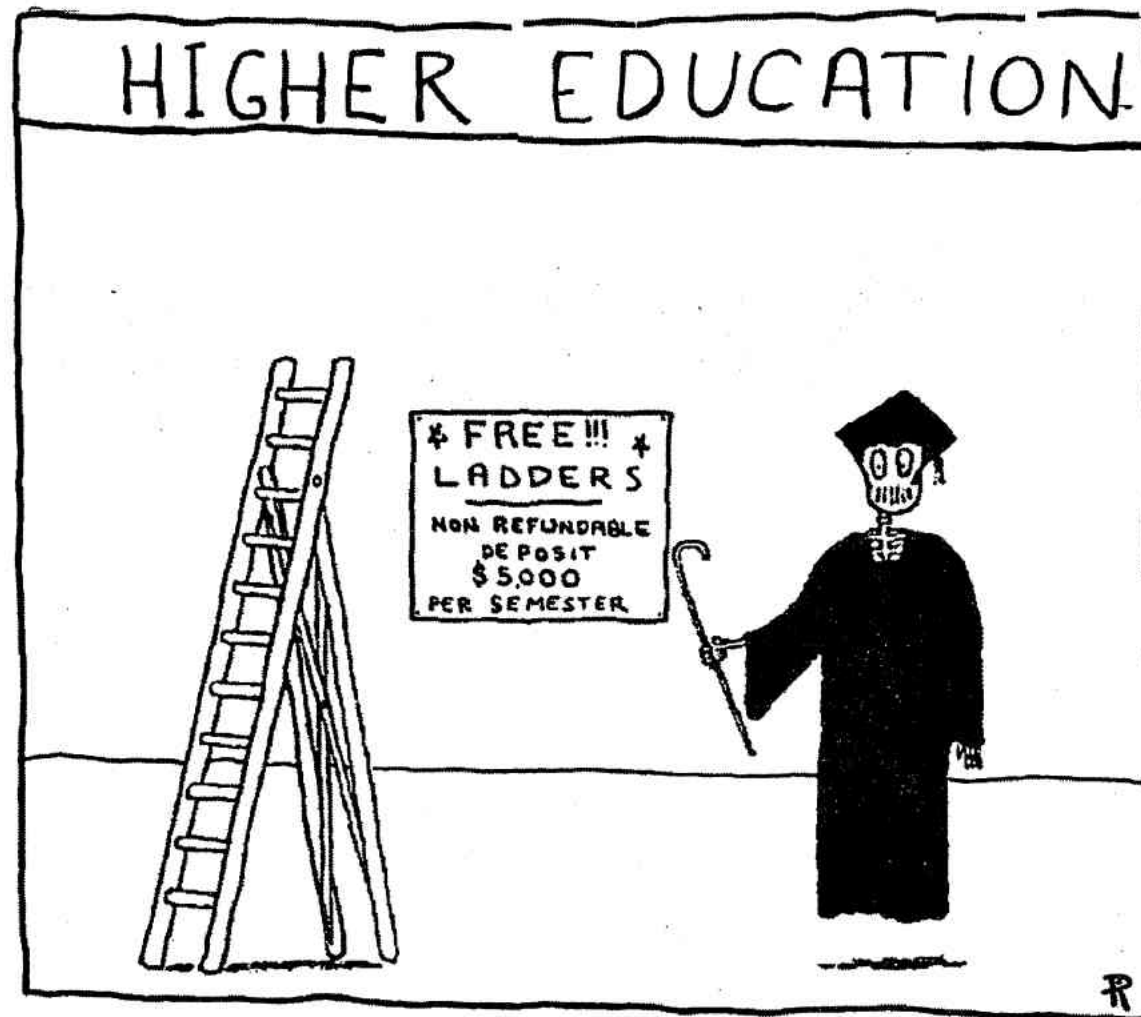 HIGHER EDUCATION
* FREE!!! *
LADDERS
NON REFUNDABLE
DEPOSIT
$5,000
PER SEMESTER